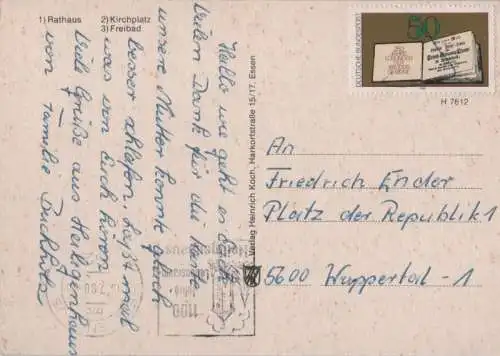 1) Rathaus 2) Kirchplatz
3) Freibad
Hallo wie geht es Euch
Vielen Dank für die Karte
unsere Mutter konnte gleich
besser schlafen. Laßt mal
was von Euch hören
Viele Grüße aus Heiligenhaus
von Familie Buchholz
Verlag Heinrich Koch, Harkortstraße 15/17, Essen
DEUTSCHE BUNDESPOST
50
H 7612
An
Friedrich Ender
Platz der Republik 1
5600 Wuppertal-1